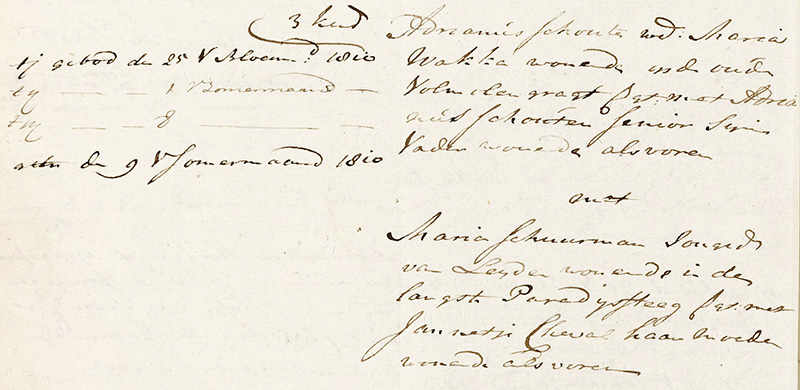 3 kind
1e gebod den 25 v Bloeim.d 1810
2e — — 1 v Zomermaand —
3e — — 8 — —
getr. den 9 v Somermaand 1810
Adrianus Schouten wed.r Maria
Wakka wonende op de oude
Volmolengragt get: met Adria
nus Schouten Senior Zijn
Vader wonende als voren
met
Maria Schuurman Jonged.
van Leyden wonende in de
langste Paradijssteeg get: met
Jannetje Cheval haar moeder
wonende als voren